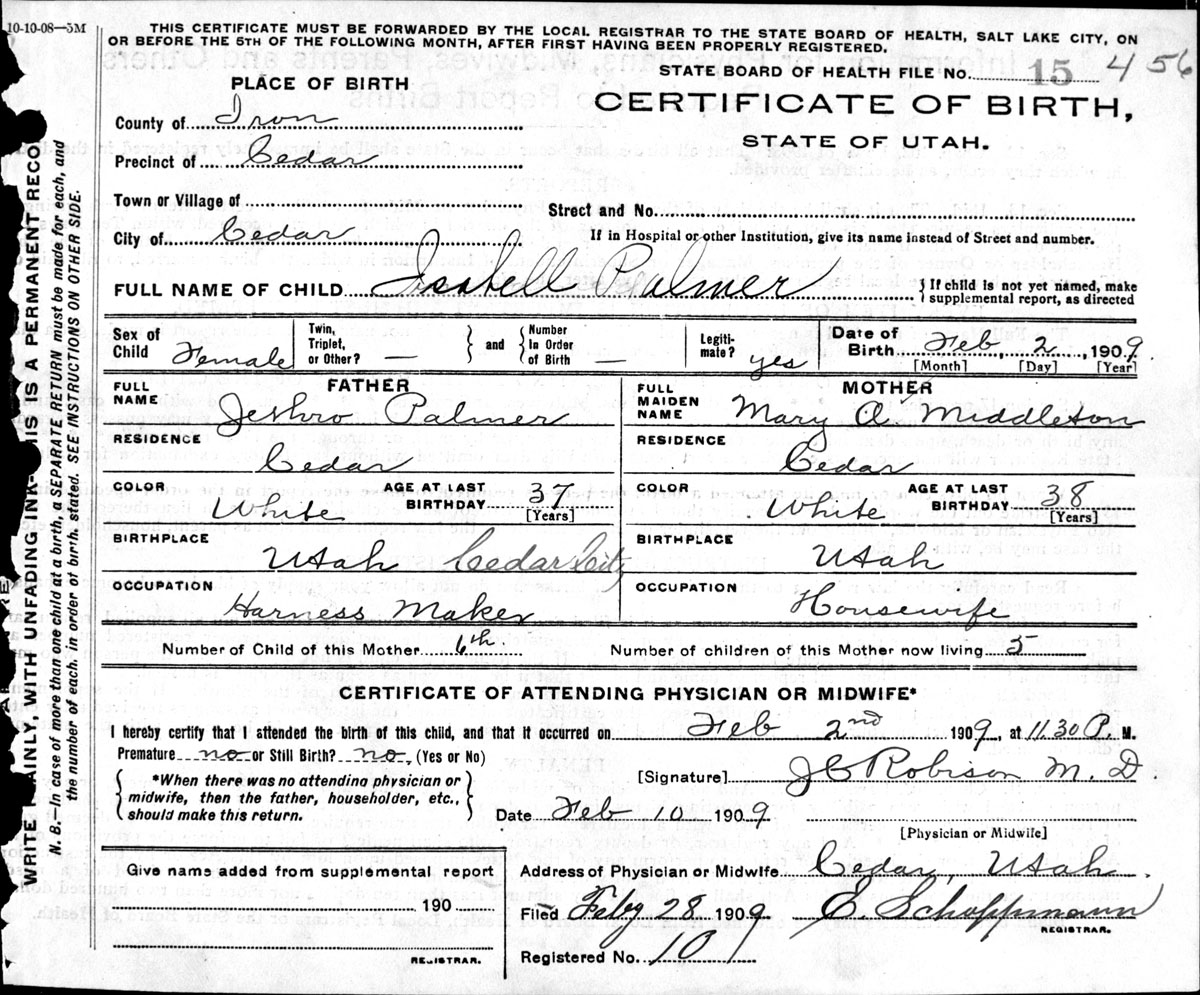 10-10-08—5M
THIS CERTIFICATE MUST BE FORWARDED BY THE LOCAL REGISTRAR TO THE STATE BOARD OF HEALTH, SALT LAKE CITY, ON
OR BEFORE THE 5TH OF THE FOLLOWING MONTH, AFTER FIRST HAVING BEEN PROPERLY REGISTERED.
STATE BOARD OF HEALTH FILE No. 15 456
PLACE OF BIRTH
CERTIFICATE OF BIRTH,
STATE OF UTAH.
County of Iron
Precinct of Cedar
Town or Village of
Street and No.
City of Cedar
If in Hospital or other Institution, give its name instead of Street and number.
FULL NAME OF CHILD Isabell Palmer
{ If child is not yet named, make
supplemental report, as directed
Sex of Child Female
Twin, Triplet, or Other? —
} and { Number In Order of Birth —
Legiti-mate? yes
Date of Birth Feb, 2, 1909.
[Month] [Day] [Year]
FATHER
FULL NAME Jethro Palmer
RESIDENCE Cedar
COLOR White
AGE AT LAST BIRTHDAY 37
[Years]
BIRTHPLACE Utah Cedar City
OCCUPATION Harness Maker
MOTHER
FULL MAIDEN NAME Mary A. Middleton
RESIDENCE Cedar
COLOR White
AGE AT LAST BIRTHDAY 38
[Years]
BIRTHPLACE Utah
OCCUPATION Housewife
Number of Child of this Mother 6th
Number of children of this Mother now living 5
CERTIFICATE OF ATTENDING PHYSICIAN OR MIDWIFE*
I hereby certify that I attended the birth of this child, and that it occurred on Feb 2nd 1909, at 11.30 P. M.
Premature no or Still Birth? no. (Yes or No)
{ *When there was no attending physician or
midwife, then the father, householder, etc.,
should make this return. }
[Signature] J C Robison M. D.
Date Feb 10 1909
[Physician or Midwife]
Give name added from supplemental report
190
REGISTRAR.
Address of Physician or Midwife Cedar, Utah.
Filed Feby 28 1909 E. Schoppmann
REGISTRAR.
Registered No. 10
WRITE PLAINLY, WITH UNFADING INK—THIS IS A PERMANENT RECO
N. B.—In case of more than one child at a birth, a SEPARATE RETURN must be made for each, and
the number of each, in order of birth, stated. SEE INSTRUCTIONS ON OTHER SIDE.